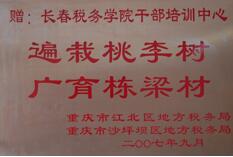 赠：长春税务学院干部培训中心
遍栽桃李树
广育栋梁材
重庆市江北区地方税务局
重庆市沙坪坝区地方税务局
二〇〇七年九月